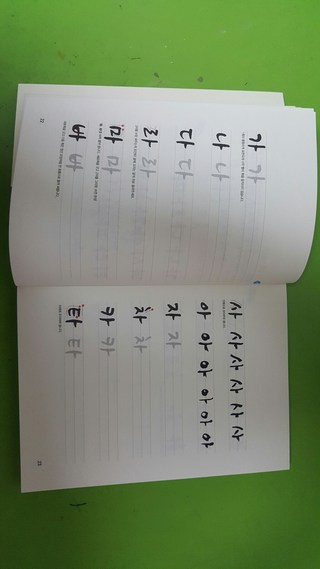 가 가
나 나
다 다
라 라
마 마
바 바
22
사 사 사 사 사 사
아 아 아 아 아 아
자 자
차 차
카 카
타 타
23